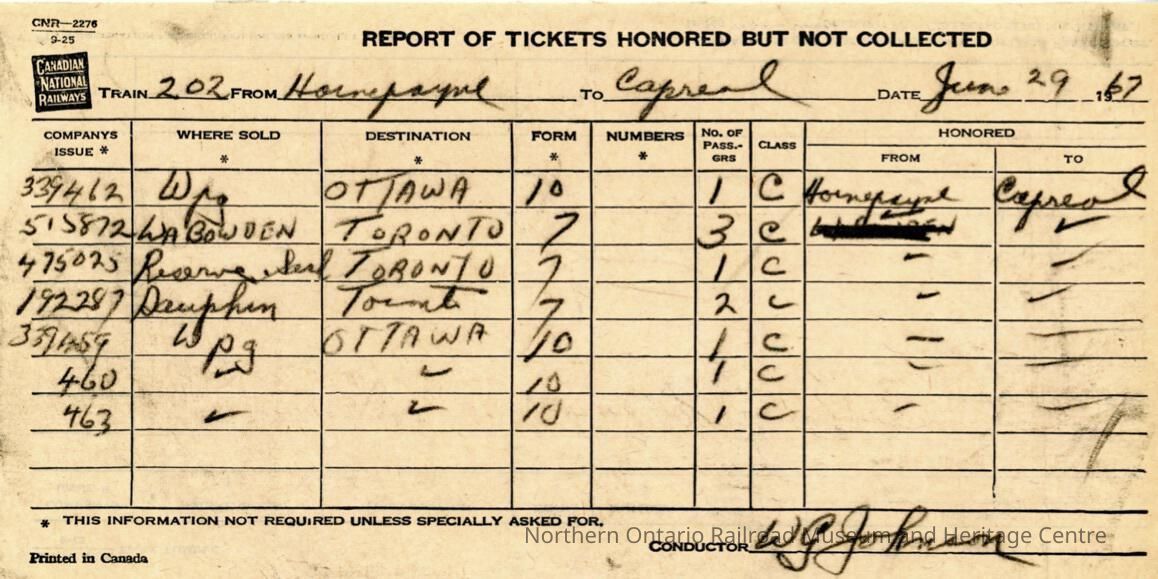 CNR—2276
9-25
REPORT OF TICKETS HONORED BUT NOT COLLECTED
CANADIAN NATIONAL RAILWAYS
TRAIN 202 FROM Hornepayne TO Capreol DATE June 29 1967
COMPANYS ISSUE * WHERE SOLD * DESTINATION * FORM * NUMBERS * NO. OF PASS.-GRS CLASS HONORED FROM TO
339462 Wpg OTTAWA 10 1 C Hornepayne Capreol
515872 WABOWDEN TORONTO 7 3 C ✓
475025 Reserve TORONTO 7 1 C
192287 Dauphin Toronto 7 2 C
339459 Wpg OTTAWA 10 1 C
460 " " 10 1 C
463 " " 10 1 C
* THIS INFORMATION NOT REQUIRED UNLESS SPECIALLY ASKED FOR.
Northern Ontario Railroad Museum and Heritage Centre
CONDUCTOR W G Johnson
Printed in Canada